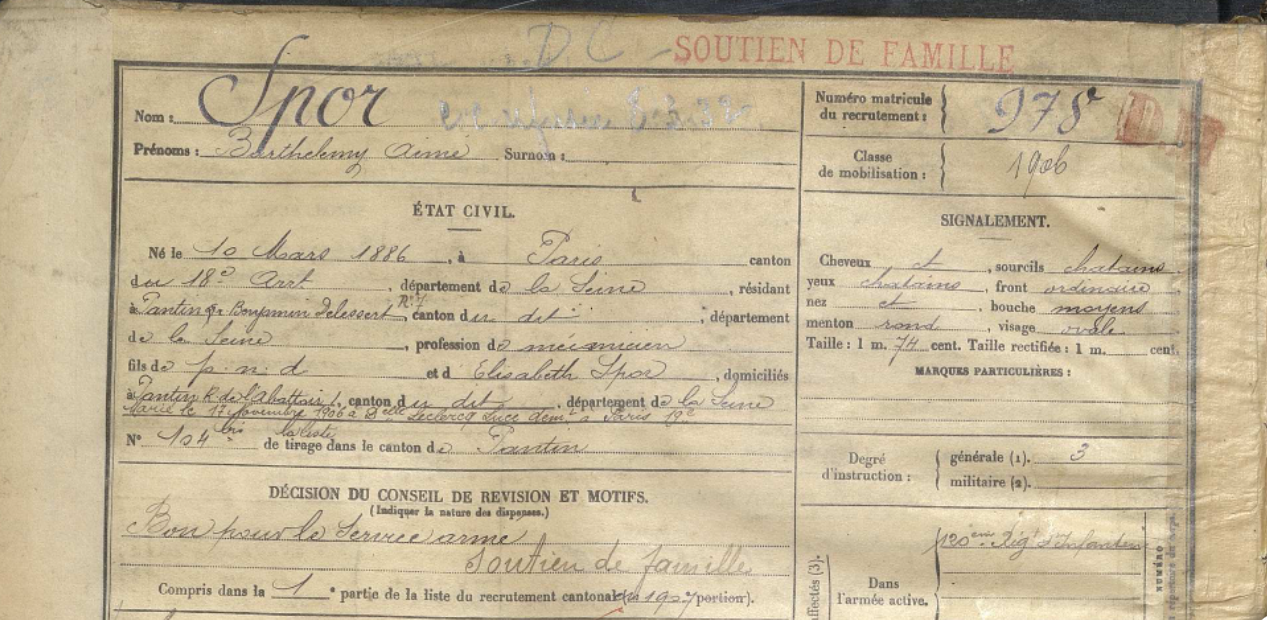 D C SOUTIEN DE FAMILLE
Nom : Spor
Prénoms : Barthelemy Aimé Surnom :
ÉTAT CIVIL.
Né le 10 Mars 1886, à Paris canton
du 18e Arrt, département de la Seine, résidant
à Pantin R. Benjamin Delessert, canton du dit, département
de la Seine, profession de mécanicien
fils de p. n. d et d Elisabeth Spor, domiciliés
à Pantin R. de l'Abattoir 1, canton du dit, département de la Seine
Marié le 17 novembre 1906 à Delle Leclercq Luce demt à Paris 19e
N° 104 bis de tirage dans le canton de Pantin
la liste
DÉCISION DU CONSEIL DE REVISION ET MOTIFS.
(Indiquer la nature des dispenses.)
Bon pour le Service armé
Soutien de famille
Compris dans la 1e partie de la liste du recrutement cantonal de 1907 portion).
Numéro matricule
du recrutement : 978
Classe
de mobilisation : 1906
SIGNALEMENT.
Cheveux et, sourcils chatains
yeux chatains, front ordinaire
nez et, bouche moyens
menton rond, visage ovale
Taille : 1 m. 74 cent. Taille rectifiée : 1 m. cent.
MARQUES PARTICULIÈRES :
Degré
d'instruction :
générale (1). 3
militaire (2).
120ème Régt d'Infanterie
Dans
l'armée active.
affectés (3).
NUMÉRO